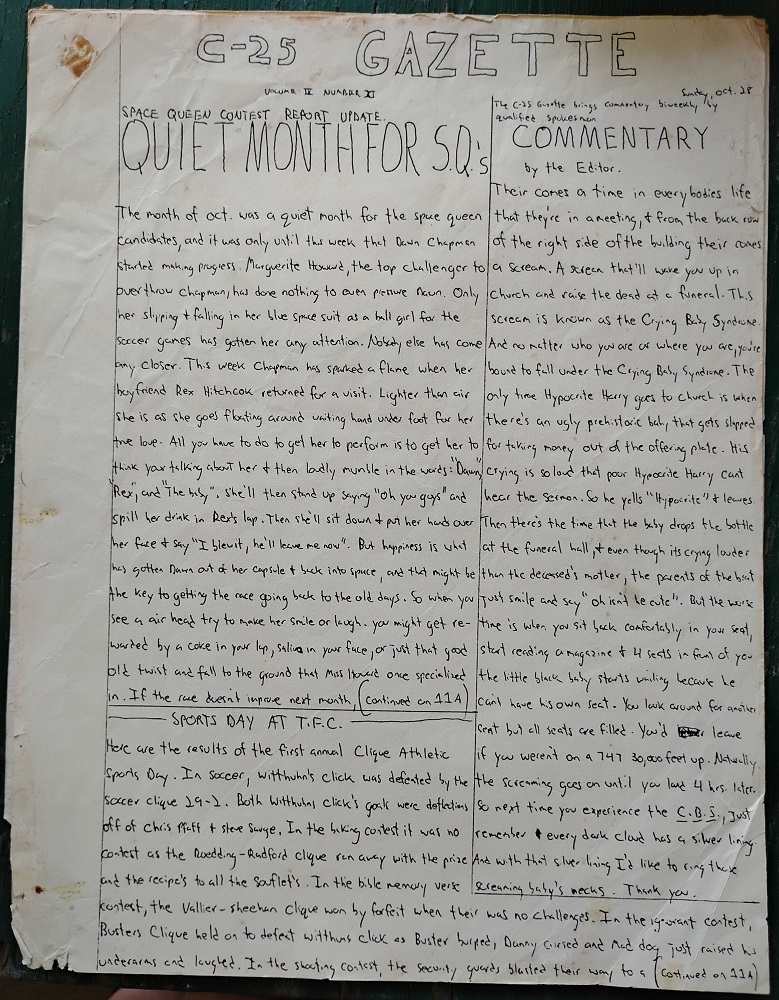 C-25 GAZETTE
VOLUME II NUMBER XI
Sunday, Oct. 28
SPACE QUEEN CONTEST REPORT UPDATE.
QUIET MONTH FOR S.Q.'s
The month of oct. was a quiet month for the space queen
candidates, and it was only until this week that Dawn Chapman
started making progress. Marguerite Howard, the top challenger to
overthrow Chapman, has done nothing to even pressure Dawn. Only
her slipping & falling in her blue space suit as a ball girl for the
soccer games has gotten her any attention. Nobody else has come
any closer. This week Chapman has sparked a flame when her
boyfriend Rex Hitchcok returned for a visit. Lighter than air
she is as she goes floating around waiting hand under foot for her
true love. All you have to do to get her to perform is to get her to
think your talking about her & then loudly mumble in the words: "Dawn",
"Rex", and "The baby". She'll then stand up saying "Oh you guys" and
spill her drink in Rex's lap. Then she'll sit down & put her hands over
her face & say "I blew it, he'll leave me now". But happiness is what
has gotten Dawn out of her capsule & back into space, and that might be
the key to getting the race going back to the old days. So when you
see a air head try to make her smile or laugh. you might get re-
warded by a coke in your lap, saliva in your face, or just that good
old twist and fall to the ground that Miss Howard once specialized
in. If the race doesn't improve next month, (continued on 11A)
SPORTS DAY AT T.F.C.
Here are the results of the first annual Clique Athletic
Sports Day. In soccer, witthuhn's click was defeated by the
soccer clique 29-2. Both Witthuhns click's goals were deflections
off of Chris Pfaff & Steve Savage. In the baking contest it was no
contest as the Roedding-Radford clique ran away with the prize
and the recipe's to all the souflet's. In the bible memory verse
contest, the Vallier-sheehan Clique won by forfeit when their was no challenges. In the ignorant contest,
Busters Clique held on to defeat witthuns click as Buster burped, Danny cursed and Mad dog just raised his
underarms and laughed. In the shooting contest, the security guards blasted their way to a (continued on 11A)
The C-25 Gazette brings commentary biweekly by
qualified spokesman
COMMENTARY
by the Editor.
Their comes a time in everybodies life
that they're in a meeting, & from the back row
of the right side of the building their comes
a scream. A scream that'll wake you up in
church and raise the dead at a funeral. This
scream is known as the Crying Baby Syndrome.
And no matter who you are or where you are, you're
bound to fall under the Crying Baby Syndrome. The
only time Hypocrite Harry goes to church is when
there's an ugly prehistoric baby that gets slapped
for taking money out of the offering plate. His
crying is so loud that poor Hypocrite Harry cant
hear the sermon. So he yells "Hypocrite" & leaves.
Then there's the time that the baby drops the bottle
at the funeral hall, & even though its crying louder
than the deceased's mother, the parents of the brat
just smile and say "oh isn't he cute". But the worse
time is when you sit back comfortably in your seat,
start reading a magazine & 4 seats in front of you
the little black baby starts wailing because he
can't have his own seat. You look around for another
seat but all seats are filled. You'd leave
if you weren't on a 747 30,000 feet up. Naturally
the screaming goes on until you land 4 hrs. later.
So next time you experience the C.B.S., just
remember every dark cloud has a silver lining.
And with that silver lining I'd like to ring those
screaming baby's necks. Thank you.